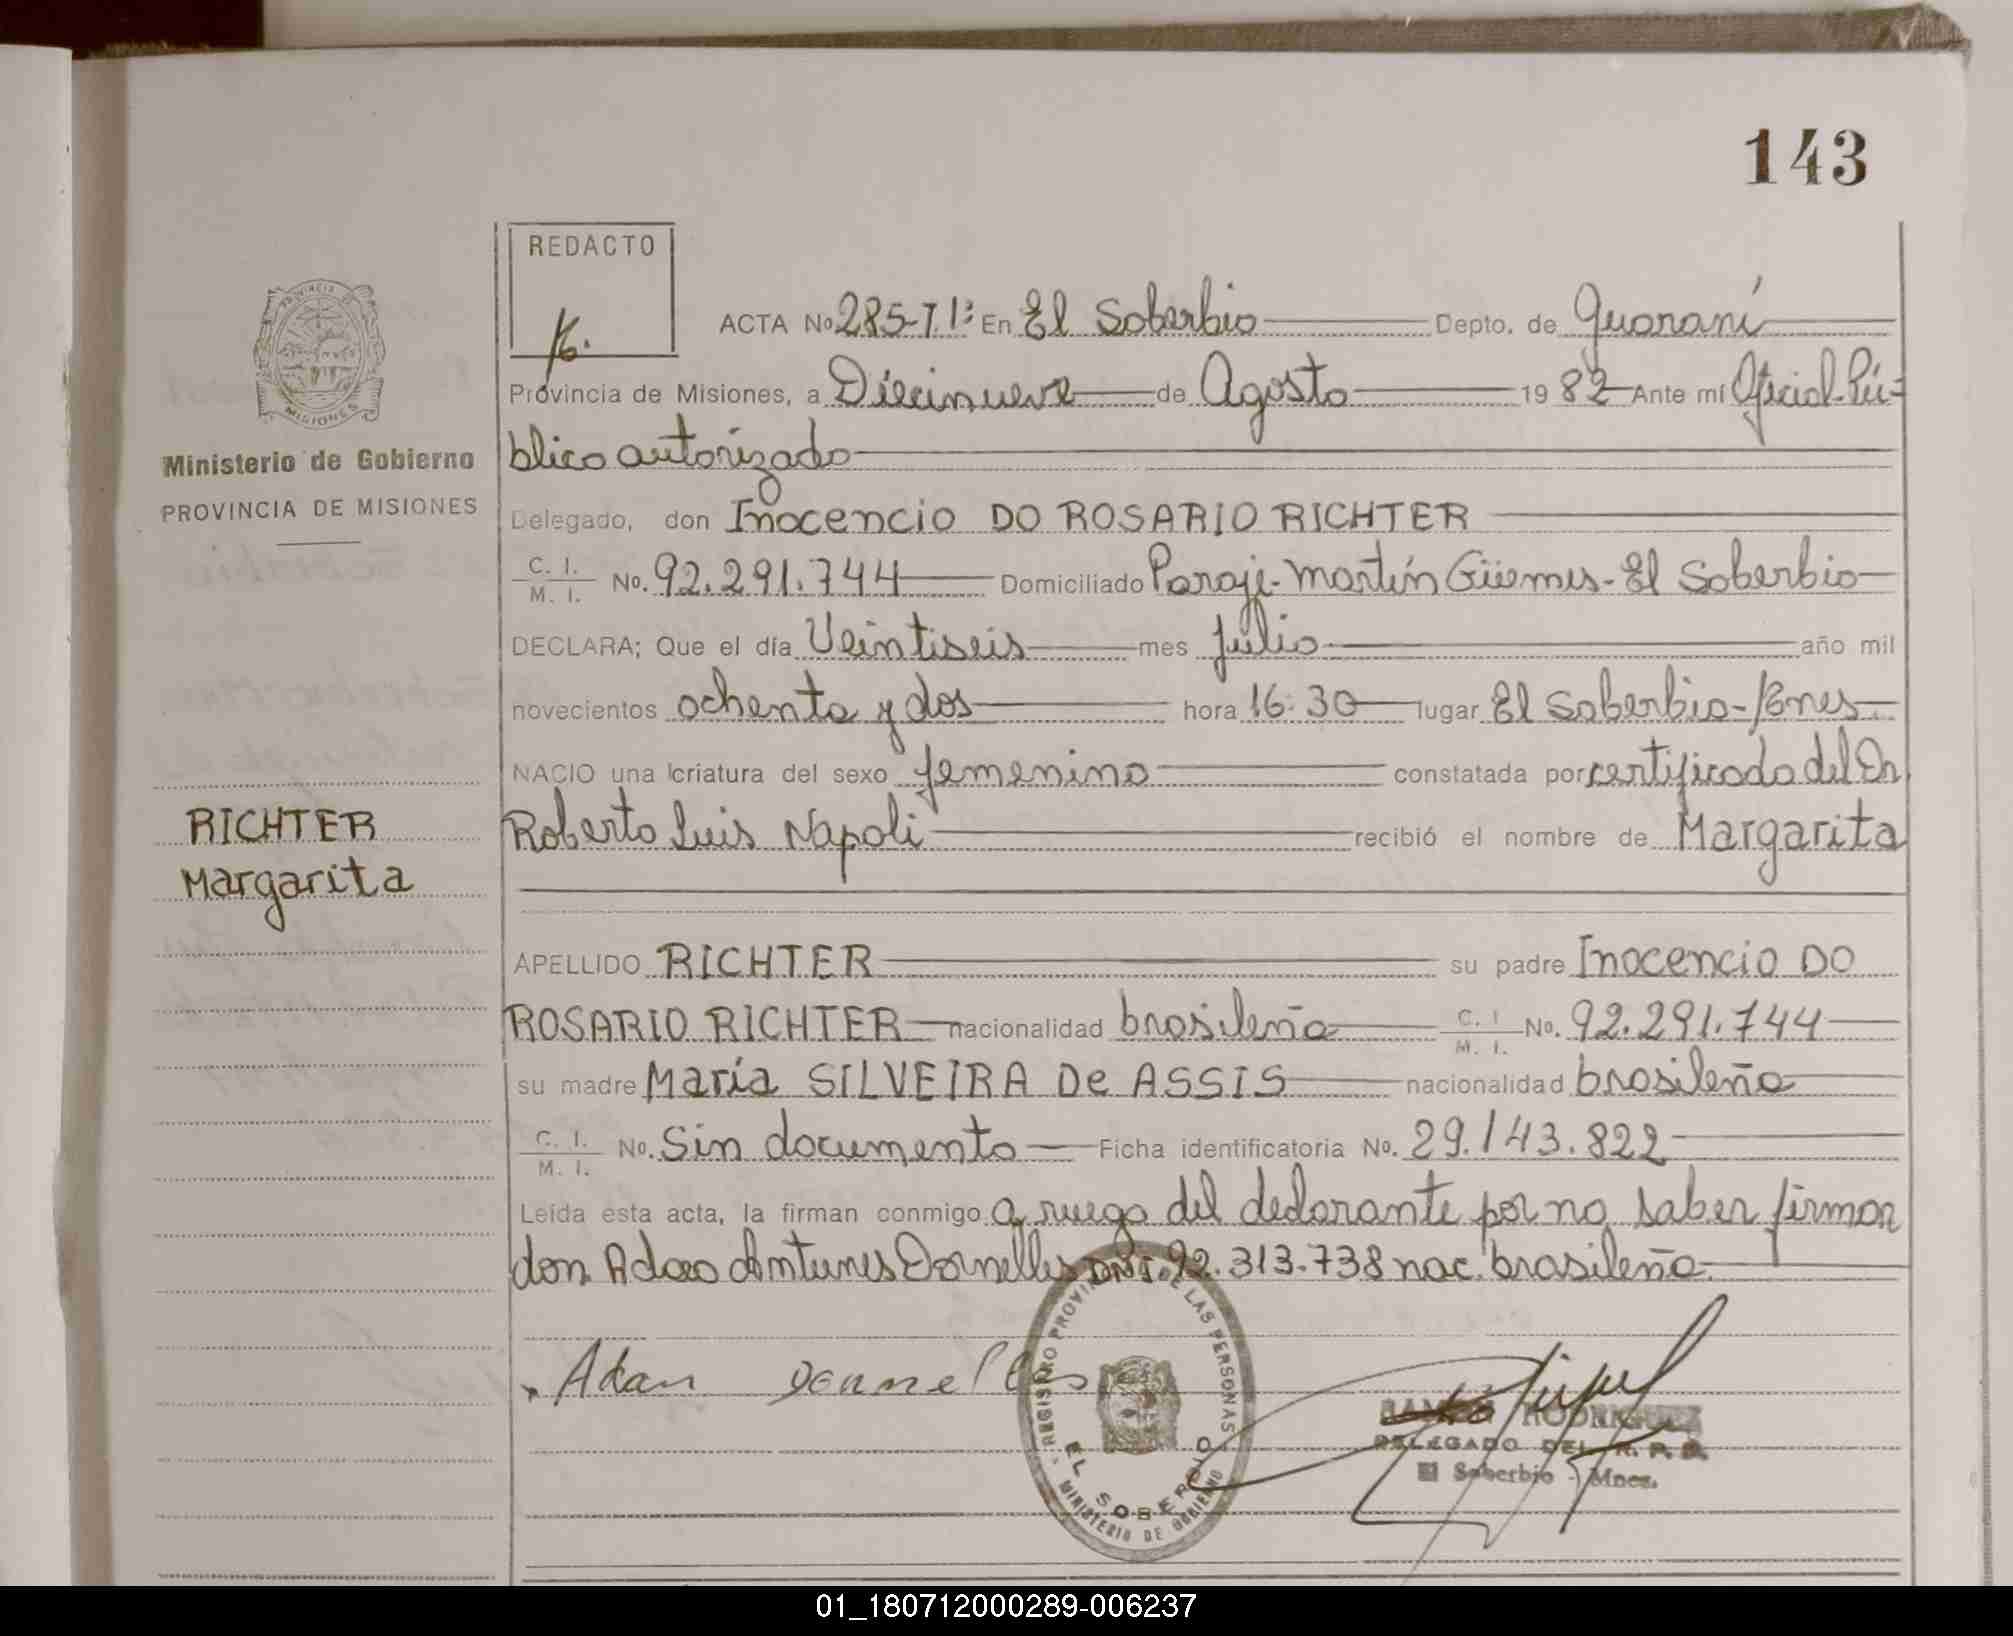 143
REDACTO
K.
PROVINCIA DE
MISIONES
Ministerio de Gobierno
PROVINCIA DE MISIONES
RICHTER
Margarita
ACTA No 285-T.1: En El Soberbio Depto. de Guaraní
Provincia de Misiones, a Diecinueve de Agosto 1982 Ante mí Oficial Pú-
blico autorizado
Delegado, don Inocencio DO ROSARIO RICHTER
C. I. M. I. No. 92.291.744 Domiciliado Paraje-Martín Güemes-El Soberbio
DECLARA; Que el día Veintiseis mes Julio año mil
novecientos ochenta y dos hora 16:30 lugar El Soberbio-
NACIO una criatura del sexo femenino constatada por certificado del Dr
Roberto Luis Napoli recibió el nombre de Margarita
APELLIDO RICHTER su padre Inocencio DO
ROSARIO RICHTER nacionalidad brasileña C. I M. I. No. 92.291.744
su madre María SILVEIRA De ASSIS nacionalidad brasileña
C. I. M. I. No. Sin documento Ficha identificatoria No. 29.143.822
Leída esta acta, la firman conmigo a ruego del declarante por no saber firmar
don Adao Antunes Dornelles DNI. 92.313.738 nac. brasileña.
Adan Dornelles
REGISTRO PROVINCIAL DE LAS PERSONAS
EL SOBERBIO
MINISTERIO DE GOBIERNO
RODRIGUEZ
DELEGADO DEL R. P. P.
El Soberbio - Mnes.
01_180712000289-006237